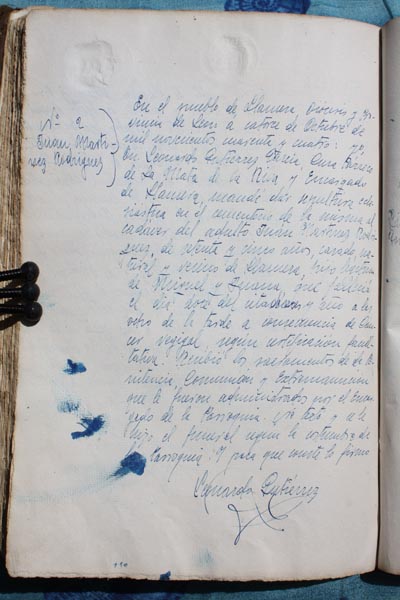 Nº 2
Juan Marti-
nez Rodriguez
En el pueblo de Llamera Diócesis y Pro-
vincia de Leon a catorce de Octubre de
mil novecientos sesenta y cuatro: yo,
Dn Leonardo Gutierrez Garcia, Cura Párroco
de La Mata de la Riva y Encargado
de Llamera, mandé dar sepultura ecle-
siastica en el cementerio de la misma al
cadáver del adulto Juan Martinez Rodri-
guez, de setenta y cinco años, casado, na-
tural y vecino de Llamera, hijo legitimo
de Miguel y Juana, que falleció
el dia doce del mes y año a las
ocho de la tarde a consecuencia de Can-
cer vejiga, segun certificación facul-
tativa. Recibió los sacramentos de Pe-
nitencia, Comunion y Extremauncion
que le fueron administrados por el Encar-
gado de la Parroquia. y se le
hizo el funeral segun la costumbre de
la Parroquia. Y para que conste lo firmo
Leonardo Gutierrez